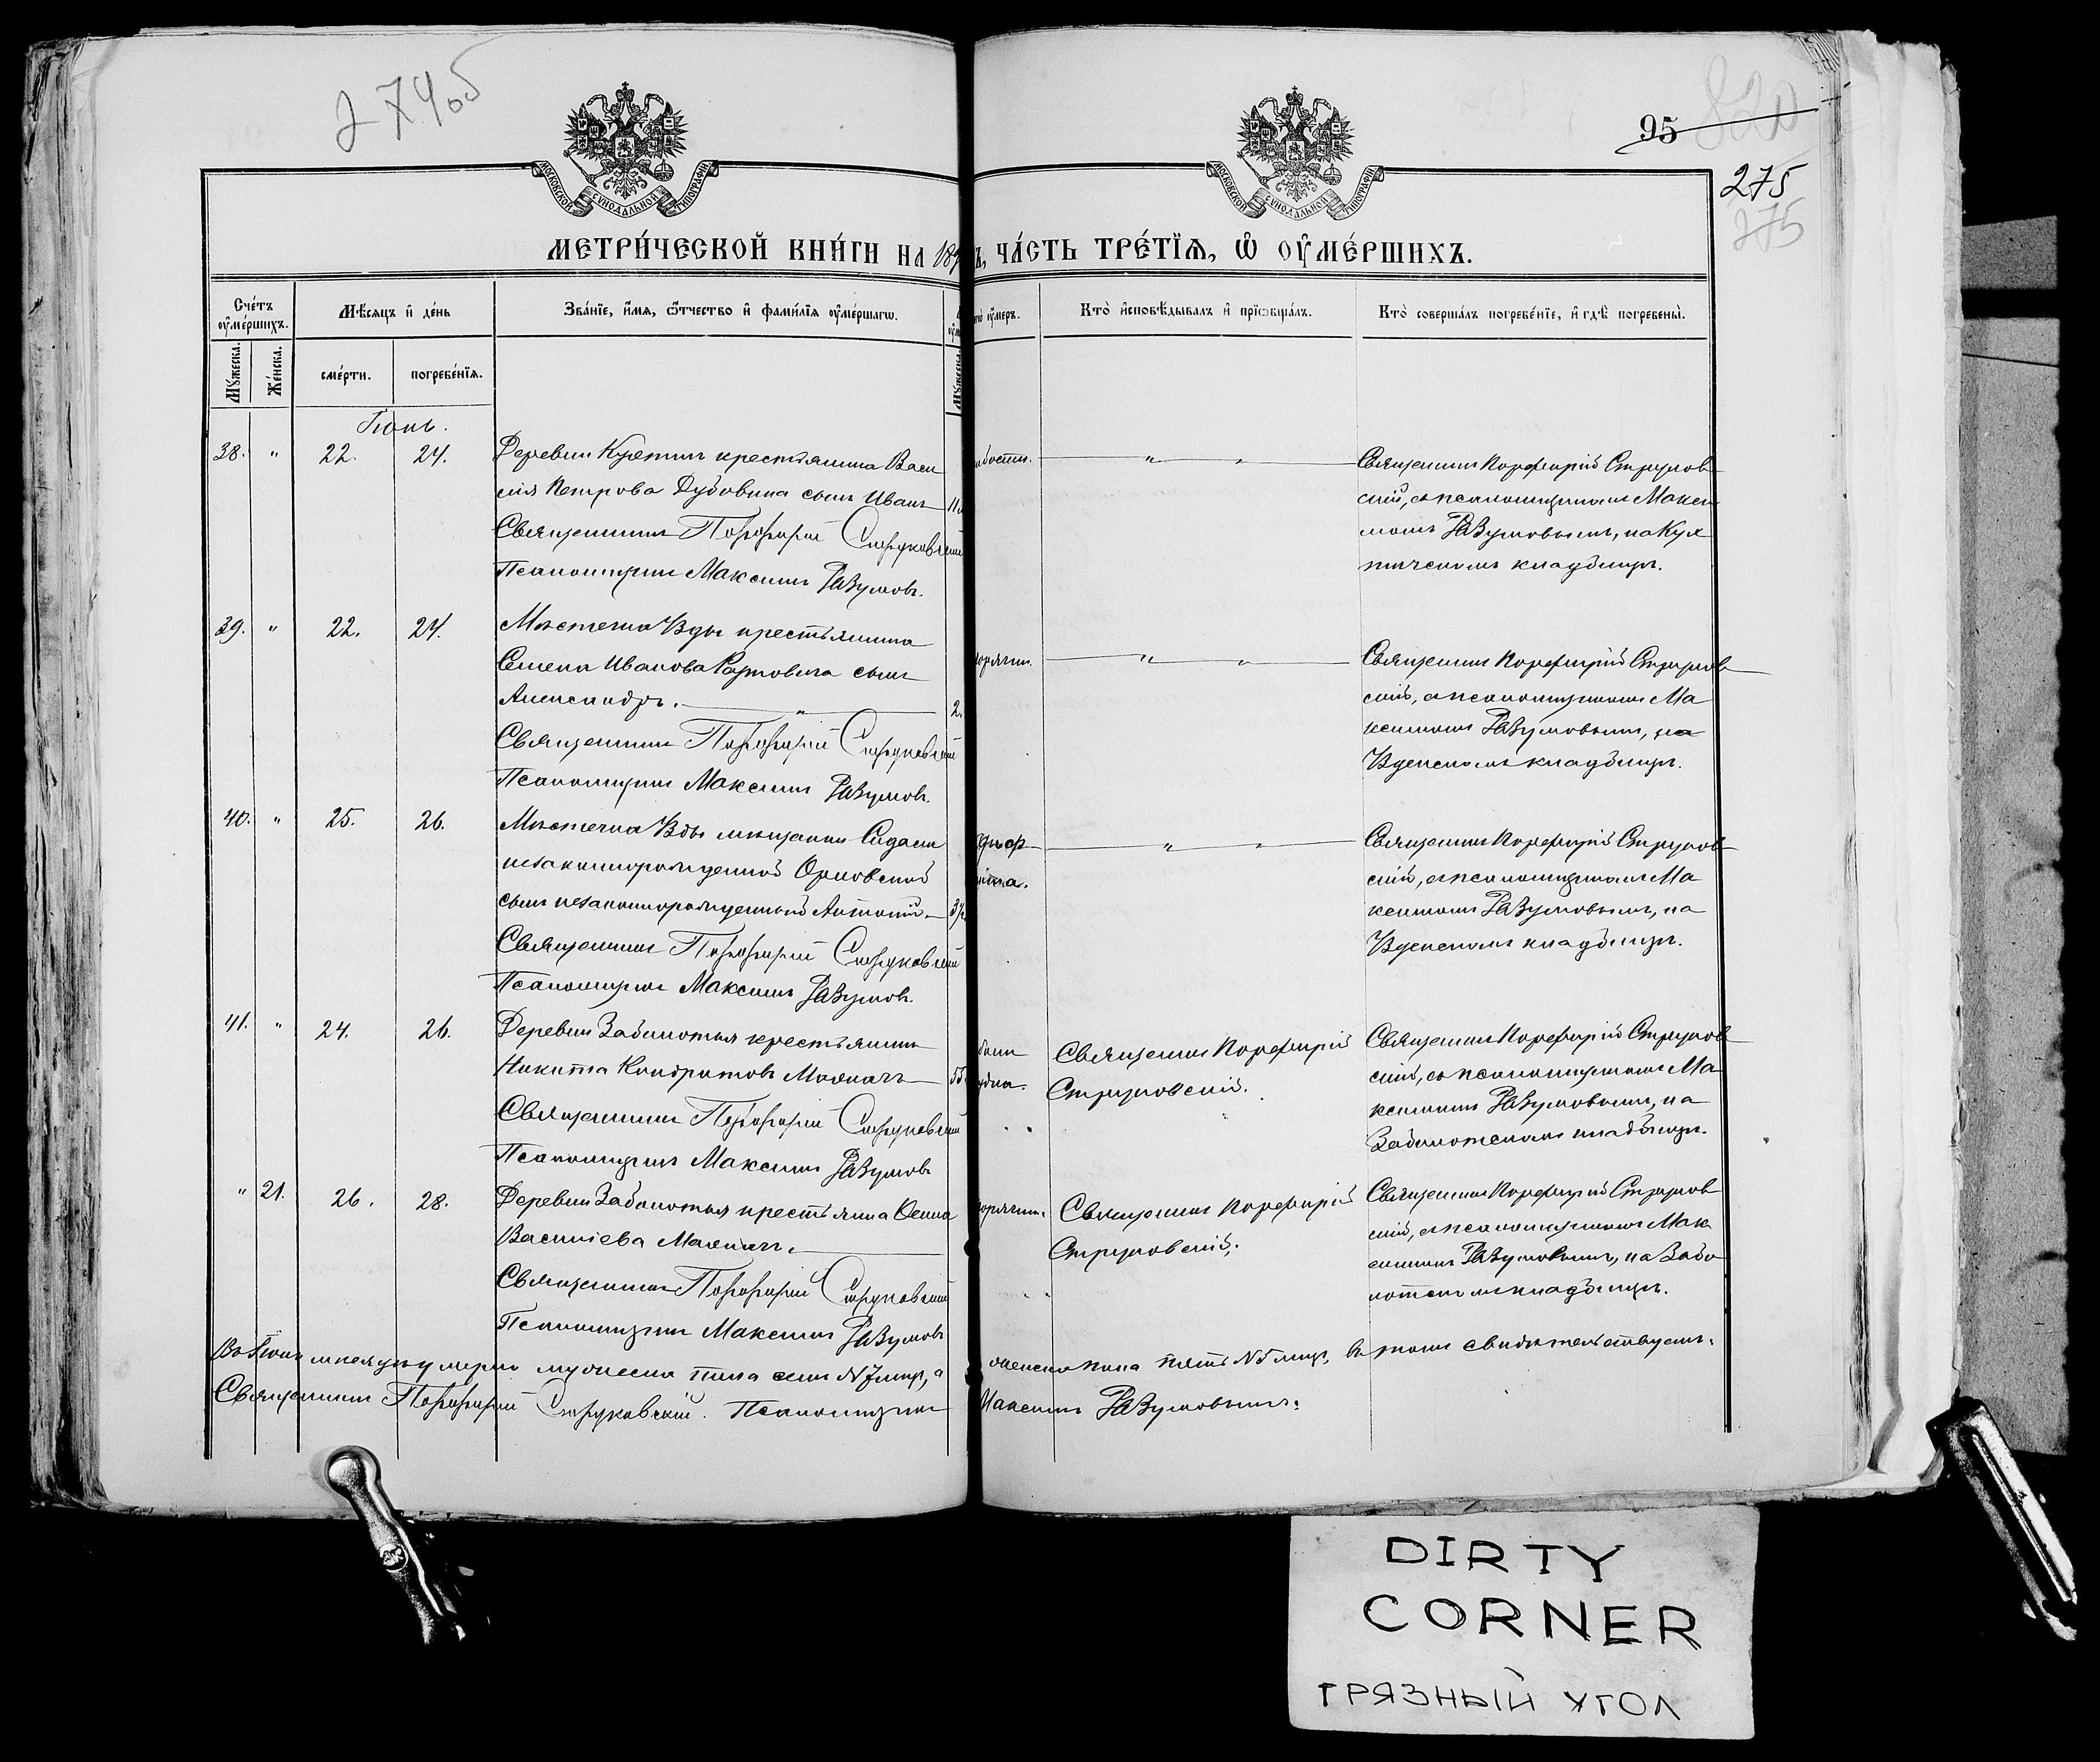 274об
95
820
275
275
МОСКОВСКОЙ СѴНОДАЛЬНОЙ ТИПОГРАФІИ
МОСКОВСКОЙ СѴНОДАЛЬНОЙ ТИПОГРАФІИ
МЕТРИ́ЧЕСКОЙ КНИ́ГИ НА 189 Ъ, ЧА́СТЬ ТРЕ́ТЇѦ, Ѡ҆ ОУ҆МЕ́РШИХЪ.
Сче́тъ оу҆ме́ршихъ.
Мѣ́сяцъ и҆ де́нь
Зва́нїе, и҆́мѧ, ѻ҆́тчество и҆ фами́лїѧ оу҆ме́ршагѡ.
оу҆́меръ.
Кто̀ и҆сповѣ́дывалъ и҆ прїѡбща́лъ.
Кто̀ соверша́лъ погребе́нїе, и҆ гдѣ̀ погребены̀.
Мꙋ́жеска.
Же́нска.
сме́рти.
погребе́нїѧ.
Мꙋ́жеска.
Іюнь.
38. " 22. 24. Деревни Кухтичъ крестьянина Васи
лія Петрова Дубовика сынъ Иванъ
Священникъ Порфирій Струковскій
Псаломщикъ Максимъ Разумовъ.
" "
Священникъ Порфирій Струков
скій, съ псаломщикомъ Макси
момъ Разумовымъ, на Кух
тическомъ кладбищѣ.
39. " 22. 24. Мѣстечка Узды крестьянина
Семена Иванова сынъ
Александръ. " 2.
Священникъ Порфирій Струковскій
Псаломщикъ Максимъ Разумовъ.
" "
Священникъ Порфирій Струков
скій, съ псаломщикомъ Ма
ксимомъ Разумовымъ, на
Узденскомъ кладбищѣ.
40. " 25. 26. Мѣстечка Узды мѣщанки
незаконнорожденной Орловской
сынъ незаконнорожденный Антоній
Священникъ Порфирій Струковскій
Псаломщикъ Максимъ Разумовъ.
" "
Священникъ Порфирій Струков
скій, съ псаломщикомъ Ма
ксимомъ Разумовымъ, на
Узденскомъ кладбищѣ.
41. " 24. 26. Деревни Заболотья крестьянинъ
Никита Кондратовъ Маякачъ 55
Священникъ Порфирій Струковскій
Псаломщикъ Максимъ Разумовъ
Священникъ Порфирій
Струковскій.
Священникъ Порфирій Струков
скій, съ псаломщикомъ Ма
ксимомъ Разумовымъ, на
Заболотскомъ кладбищѣ.
" 21. 26. 28. Деревни Заболотья крестьянина
Василіева
Священникъ Порфирій Струковскій
Псаломщикъ Максимъ Разумовъ
Священникъ Порфирій
Струковскій.
Священникъ Порфирій Струков
скій, съ псаломщикомъ Мак
симомъ Разумовымъ, на Забо
лотскомъ кладбищѣ.
Въ Іюнѣ мѣсяцѣ умерло мужеска пола семь N7 лицъ, а женска пола пять N5 лицъ, въ томъ свидѣтельствуемъ:
Священникъ Порфирій Струковскій. Псаломщикъ Максимъ Разумовымъ:
DIRTY
CORNER
ГРЯЗНЫЙ УГОЛ